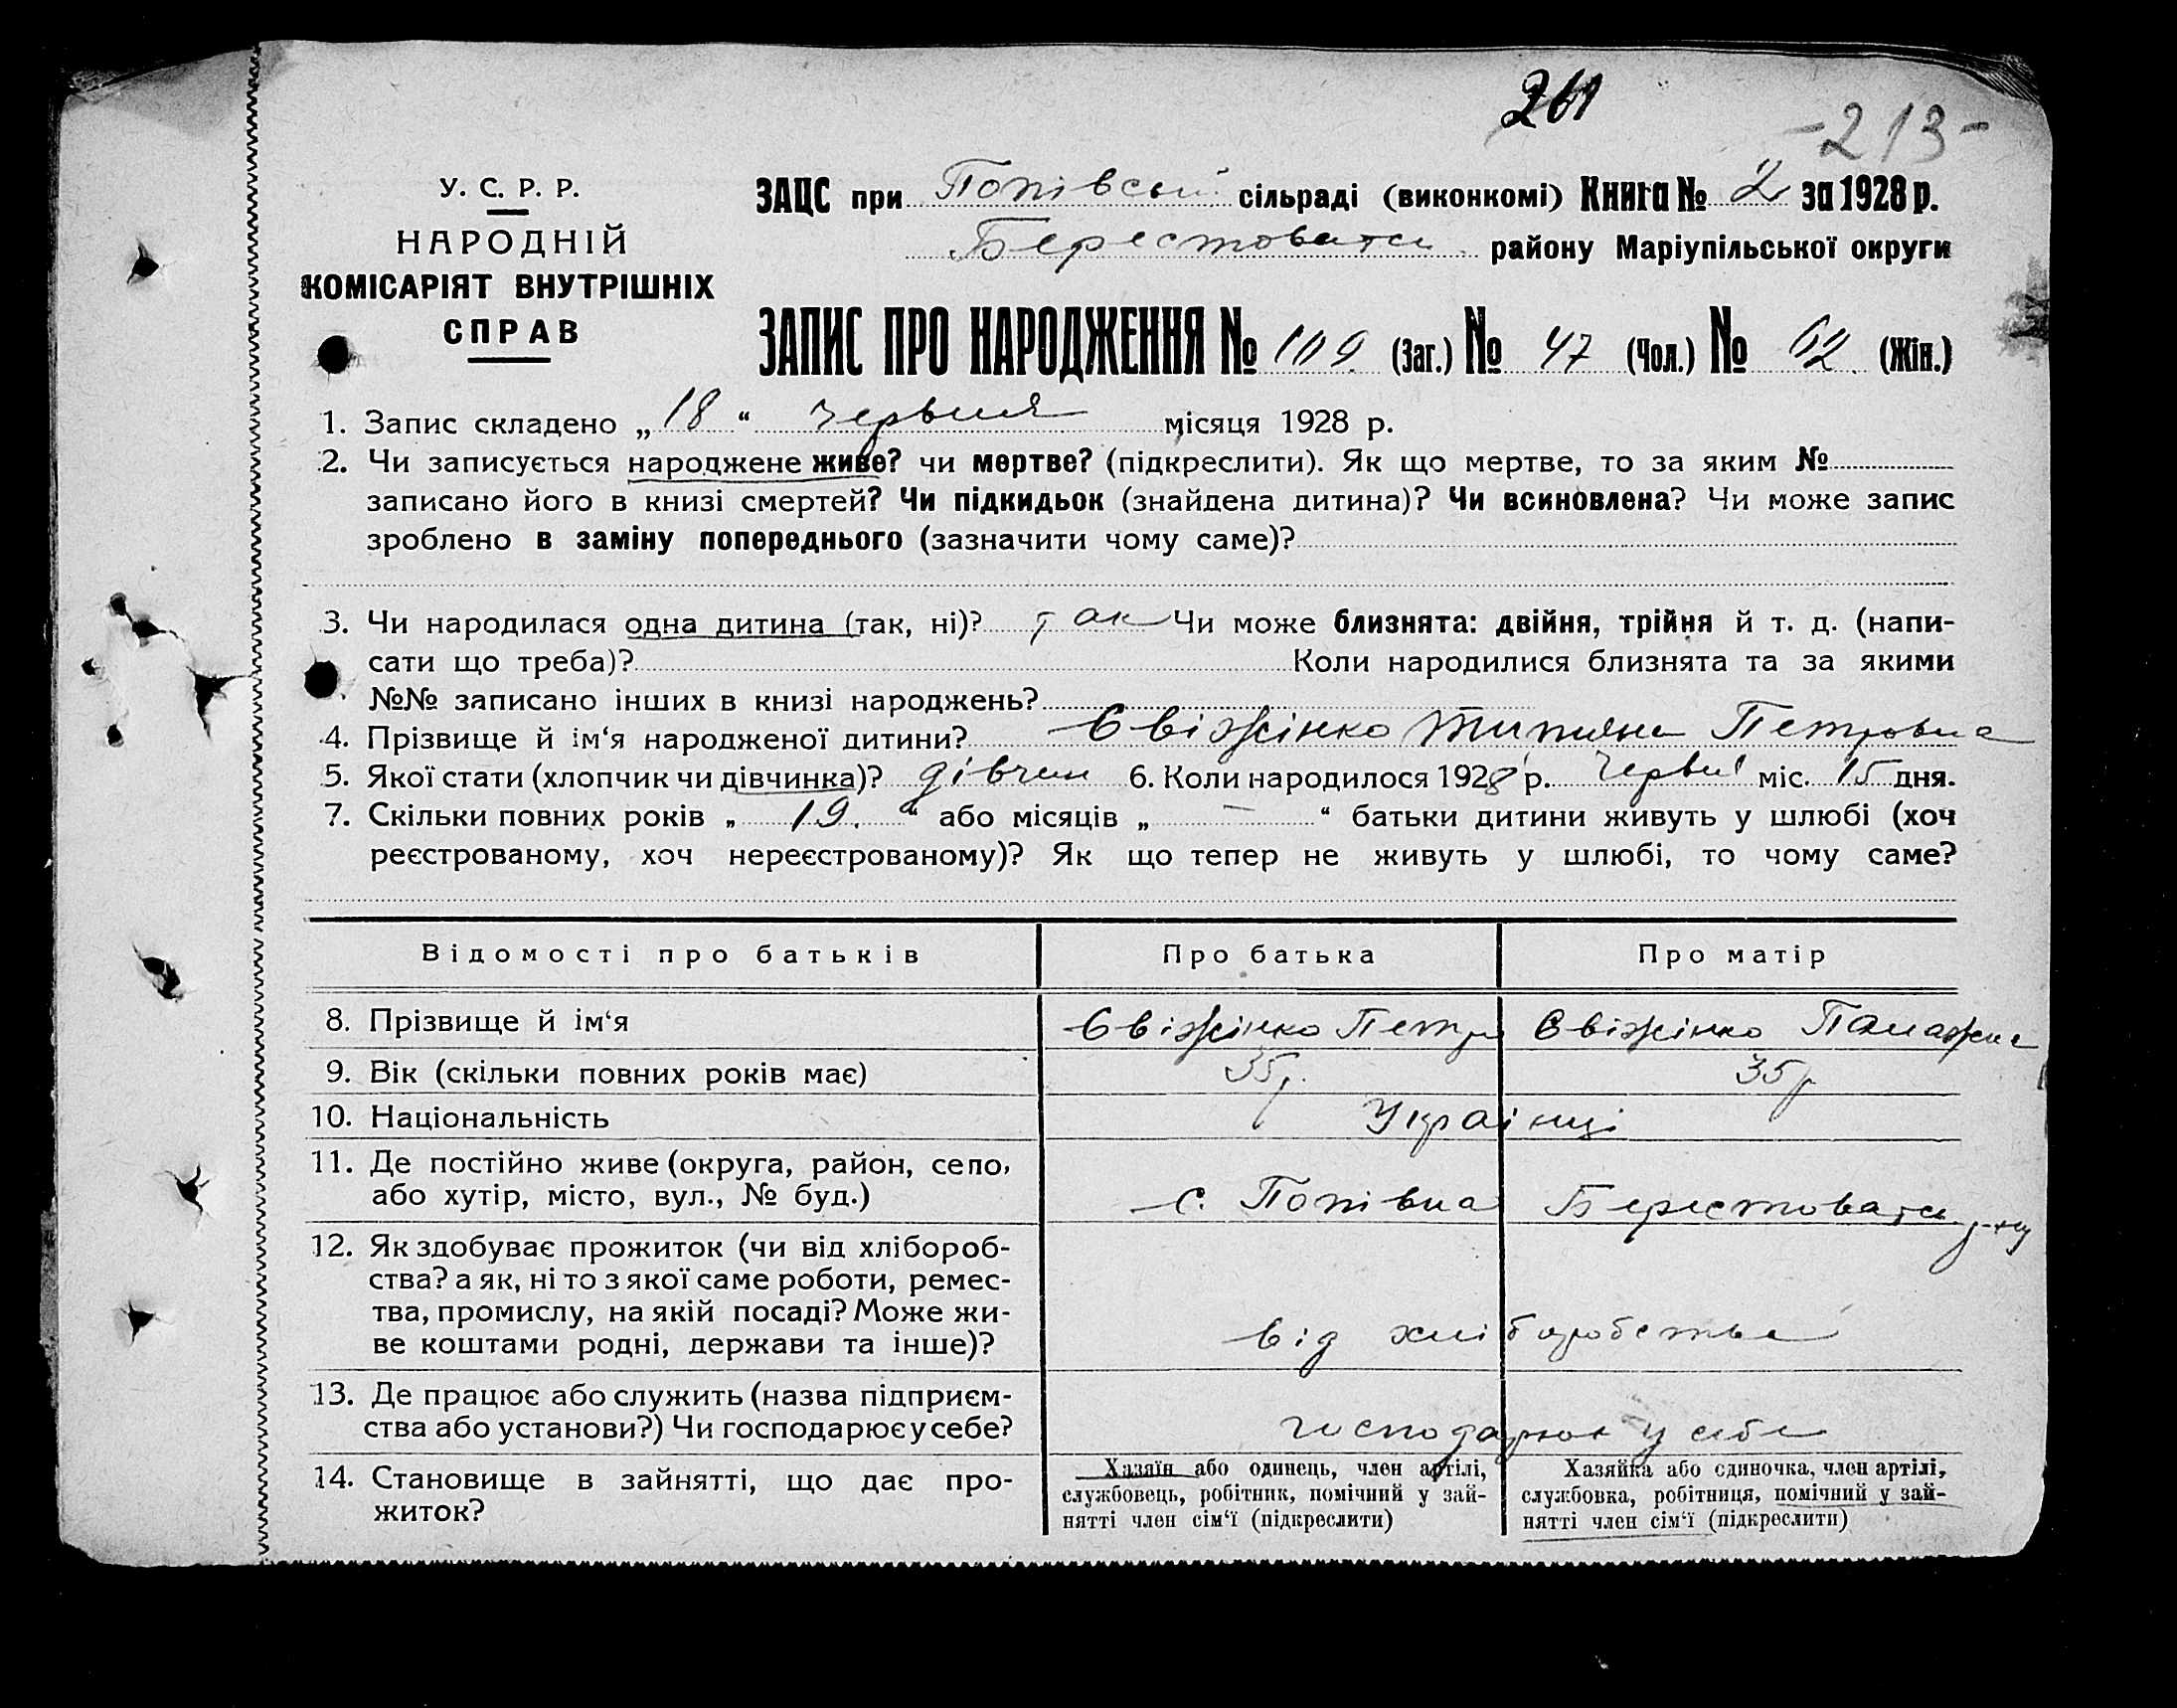 261
-213-
У. С. Р. Р.
НАРОДНІЙ
КОМІСАРІЯТ ВНУТРІШНІХ
СПРАВ
ЗАЦС при Попівській сільраді (виконкомі) Книга № 2 за 1928 р.
Берестоватськ району Маріупільської округи
ЗАПИС ПРО НАРОДЖЕННЯ № 109 (Заг.) № 47 (Чол.) № 62 (Жін.)
1. Запис складено „ 18 “ червня місяця 1928 р.
2. Чи записується народжене живе? чи мертве? (підкреслити). Як що мертве, то за яким №
записано його в книзі смертей? Чи підкидьок (знайдена дитина)? Чи всиновлена? Чи може запис
зроблено в заміну попереднього (зазначити чому саме)?
3. Чи народилася одна дитина (так, ні)? так Чи може близнята: двійня, трійня й т. д. (напи-
сати що треба)? Коли народилися близнята та за якими
№№ записано інших в книзі народжень?
4. Прізвище й ім‘я народженої дитини? Євіжінко Титяна Петровна
5. Якої стати (хлопчик чи дівчинка)? дівчин 6. Коли народилося 1928 р. Червня міс. 15 дня.
7. Скільки повних років „ 19. “ або місяців „ — “ батьки дитини живуть у шлюбі (хоч
реєстрованому, хоч нереєстрованому)? Як що тепер не живуть у шлюбі, то чому саме?
Відомості про батьків Про батька Про матір
8. Прізвище й ім‘я Євіжінко Петро Євіжінко Палажка
9. Вік (скільки повних років має) 35 р. 35 р
10. Національність Українці
11. Де постійно живе (округа, район, село,
або хутір, місто, вул., № буд.) с. Попівка Берестоватськ р-ну
12. Як здобуває прожиток (чи від хлібороб-
ства? а як, ні то з якої саме роботи, ремес-
тва, промислу, на якій посаді? Може жи-
ве коштами родні, держави та інше)? від хліборобства
13. Де працює або служить (назва підприєм-
ства або установи?) Чи господарює у себе? господарює у себе
14. Становище в зайнятті, що дає про-
житок?
Хазяїн або одинець, член артілі,
службовець, робітник, помічний у зай-
нятті член сім‘ї (підкреслити)
Хазяйка або єдиночка, член артілі,
службовка, робітниця, помічний у зай-
нятті член сім‘ї (підкреслити)